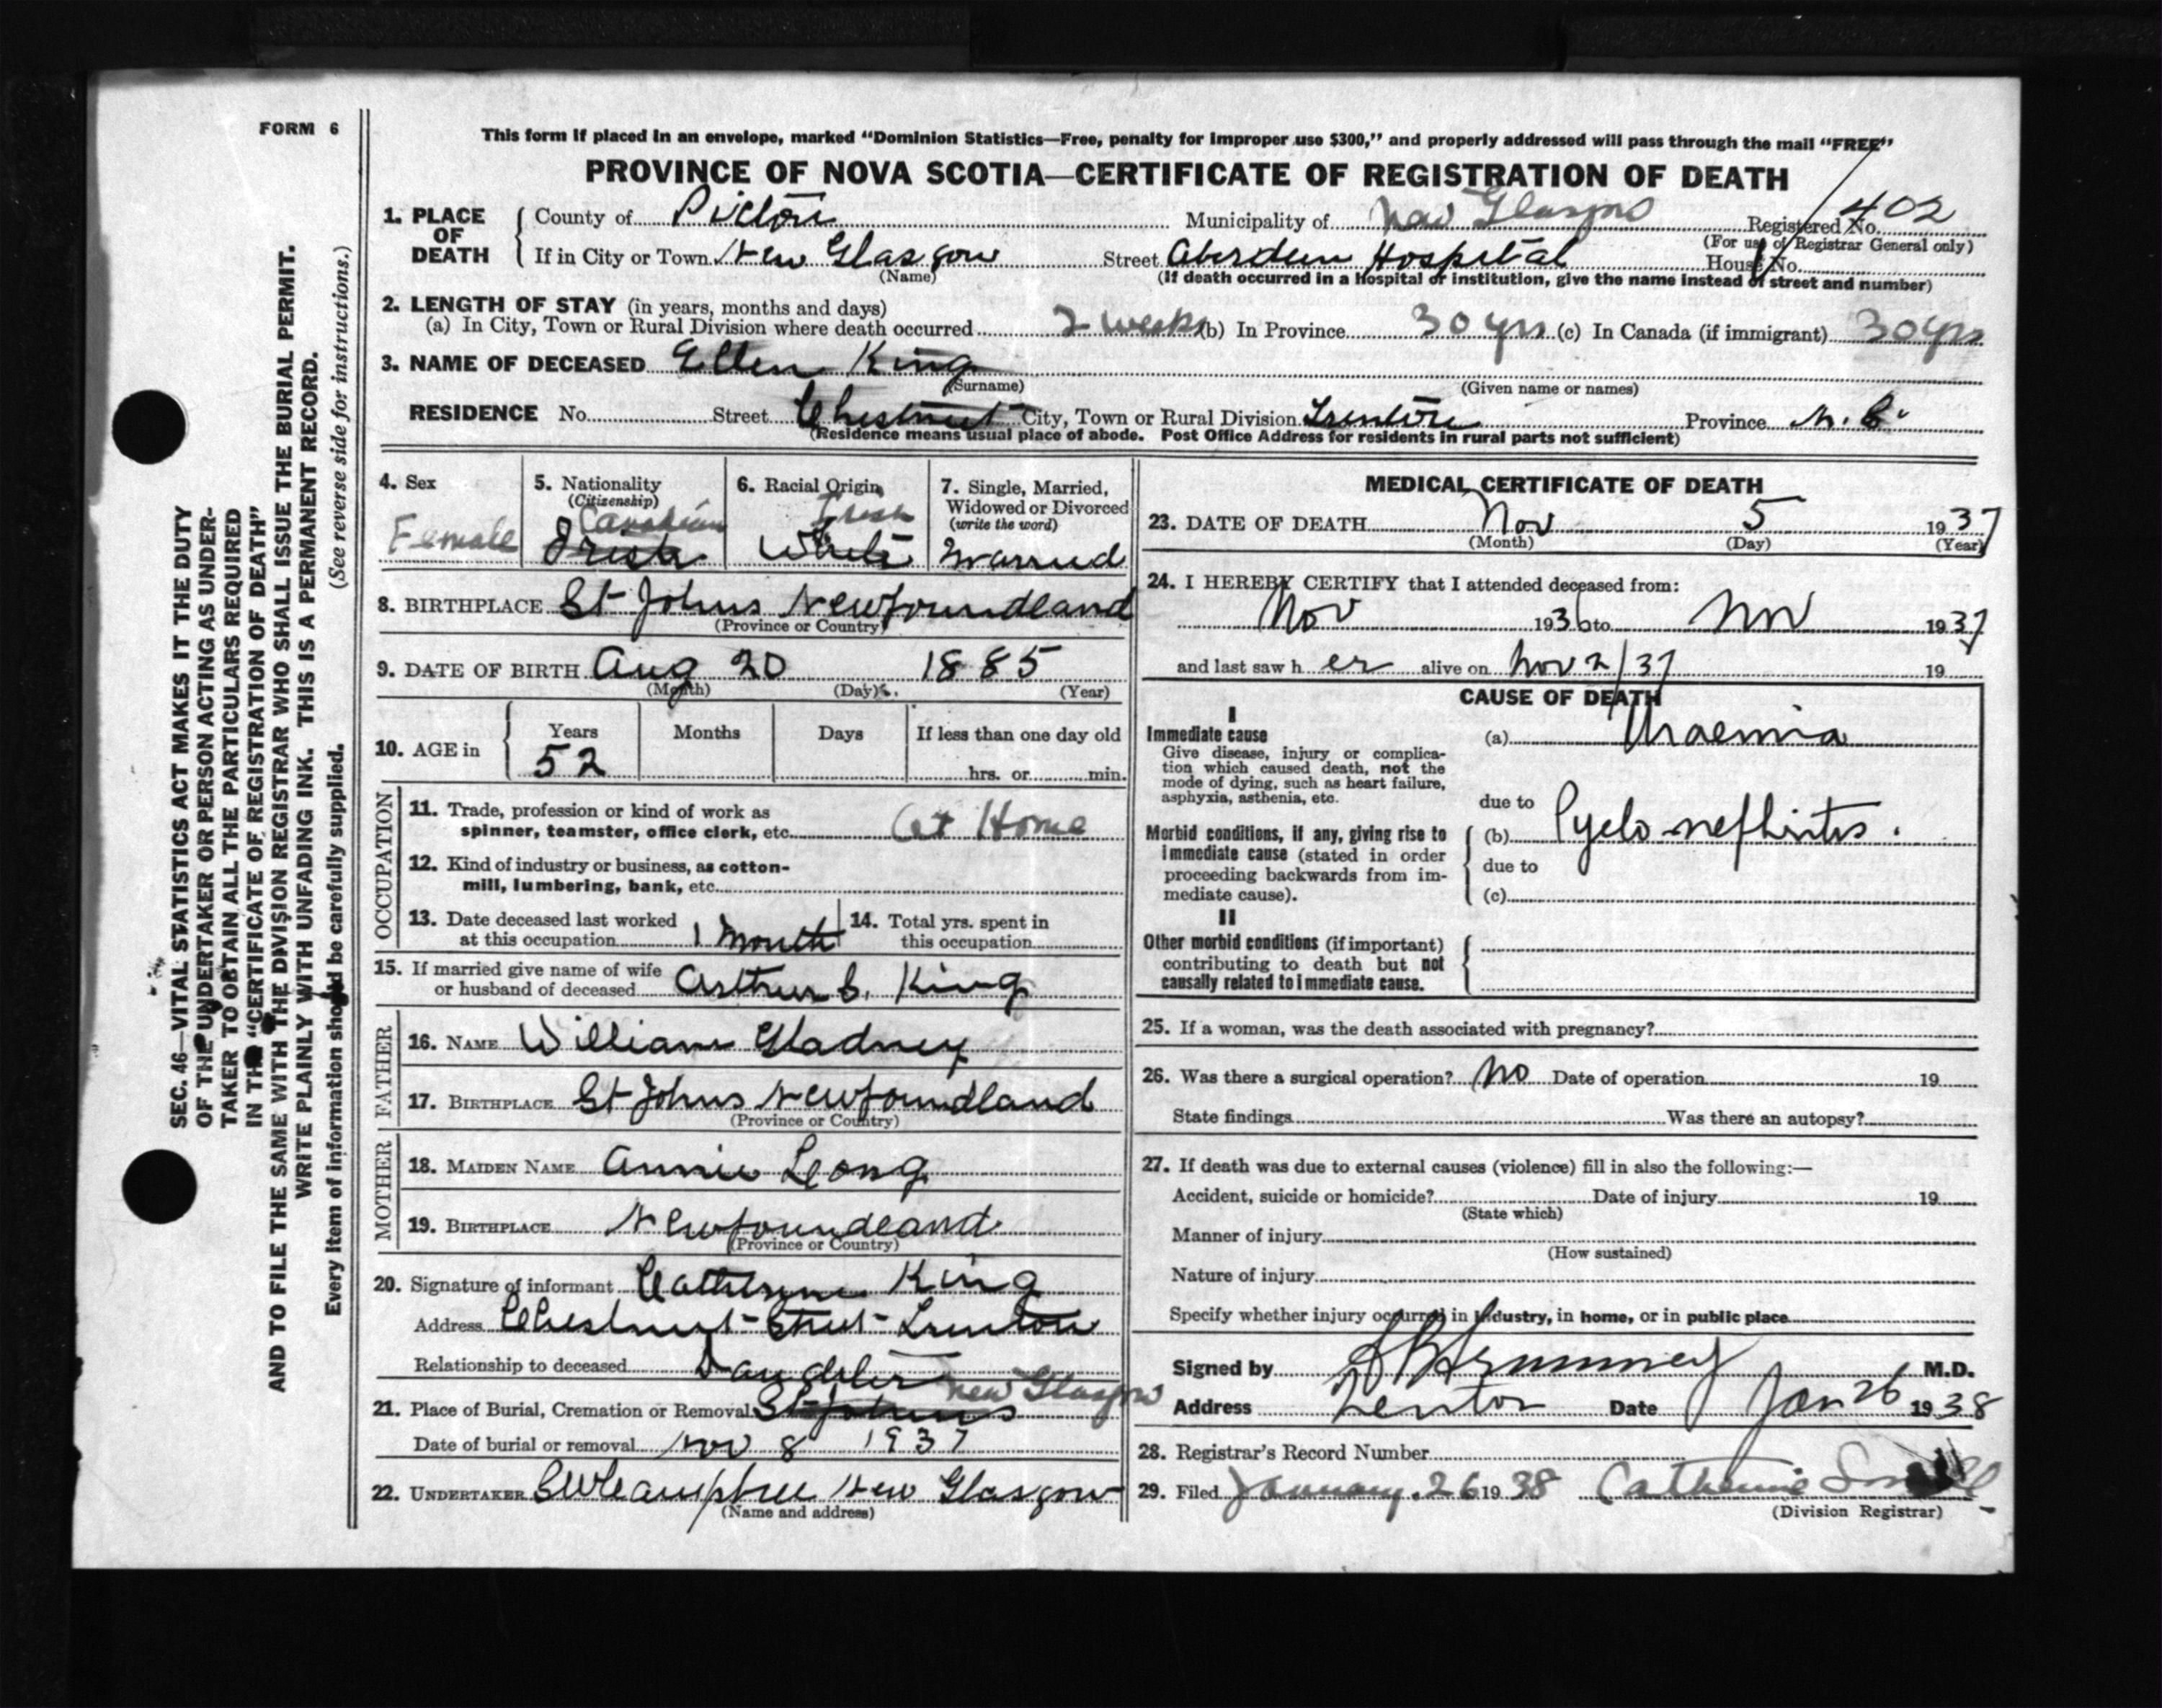 FORM 6
This form if placed in an envelope, marked "Dominion Statistics—Free, penalty for improper use $300," and properly addressed will pass through the mail "FREE"
PROVINCE OF NOVA SCOTIA—CERTIFICATE OF REGISTRATION OF DEATH
1. PLACE OF DEATH
County of Pictou Municipality of New Glasgow Registered No. 402
(For use of Registrar General only)
If in City or Town New Glasgow Street Aberdeen Hospital House No.
(Name) (If death occurred in a hospital or institution, give the name instead of street and number)
2. LENGTH OF STAY (in years, months and days)
(a) In City, Town or Rural Division where death occurred 2 weeks (b) In Province 30 yrs (c) In Canada (if immigrant) 30 yrs
3. NAME OF DECEASED Ellen King
(Surname) (Given name or names)
RESIDENCE No. Street Chestnut City, Town or Rural Division Trenton Province N. S.
(Residence means usual place of abode. Post Office Address for residents in rural parts not sufficient)
4. Sex
Female
5. Nationality
(Citizenship)
Canadian
Irish
6. Racial Origin
Irish
White
7. Single, Married,
Widowed or Divorced
(write the word)
Married
8. BIRTHPLACE St Johns Newfoundland
(Province or Country)
9. DATE OF BIRTH Aug 20 1885
(Month) (Day) (Year)
10. AGE in
Years Months Days If less than one day old
52 hrs. or min.
OCCUPATION
11. Trade, profession or kind of work as
spinner, teamster, office clerk, etc. At Home
12. Kind of industry or business, as cotton-
mill, lumbering, bank, etc.
13. Date deceased last worked
at this occupation 1 Month
14. Total yrs. spent in
this occupation
15. If married give name of wife
or husband of deceased Arthur S. King
FATHER
16. NAME William Gladney
17. BIRTHPLACE St Johns Newfoundland
(Province or Country)
MOTHER
18. MAIDEN NAME Annie Leong
19. BIRTHPLACE Newfoundland
(Province or Country)
20. Signature of informant Catherine King
Address Chestnut Street Trenton
Relationship to deceased Daughter
21. Place of Burial, Cremation or Removal St Johns New Glasgow
Date of burial or removal Nov 8 1937
22. UNDERTAKER New Glasgow
(Name and address)
MEDICAL CERTIFICATE OF DEATH
23. DATE OF DEATH Nov 5 1937
(Month) (Day) (Year)
24. I HEREBY CERTIFY that I attended deceased from:
Nov 1936 to Nov 1937
and last saw her alive on Nov 2/37 19
CAUSE OF DEATH
I
Immediate cause
Give disease, injury or complica-
tion which caused death, not the
mode of dying, such as heart failure,
asphyxia, asthenia, etc.
(a) Uraemia
due to
Morbid conditions, if any, giving rise to
immediate cause (stated in order
proceeding backwards from im-
mediate cause).
(b) Pyelo-nephritis.
due to
(c)
II
Other morbid conditions (if important)
contributing to death but not
causally related to immediate cause.
25. If a woman, was the death associated with pregnancy?
26. Was there a surgical operation? No Date of operation 19
State findings Was there an autopsy?
27. If death was due to external causes (violence) fill in also the following:—
Accident, suicide or homicide? Date of injury 19
(State which)
Manner of injury
(How sustained)
Nature of injury
Specify whether injury occurred in industry, in home, or in public place
Signed by M.D.
Address Trenton Date Jan 26 1938
28. Registrar's Record Number
29. Filed January 26 1938 Catherine
(Division Registrar)
SEC. 46—VITAL STATISTICS ACT MAKES IT THE DUTY
OF THE UNDERTAKER OR PERSON ACTING AS UNDER-
TAKER TO OBTAIN ALL THE PARTICULARS REQUIRED
IN THE "CERTIFICATE OF REGISTRATION OF DEATH"
AND TO FILE THE SAME WITH THE DIVISION REGISTRAR WHO SHALL ISSUE THE BURIAL PERMIT.
WRITE PLAINLY WITH UNFADING INK. THIS IS A PERMANENT RECORD.
Every item of information should be carefully supplied. (See reverse side for instructions.)